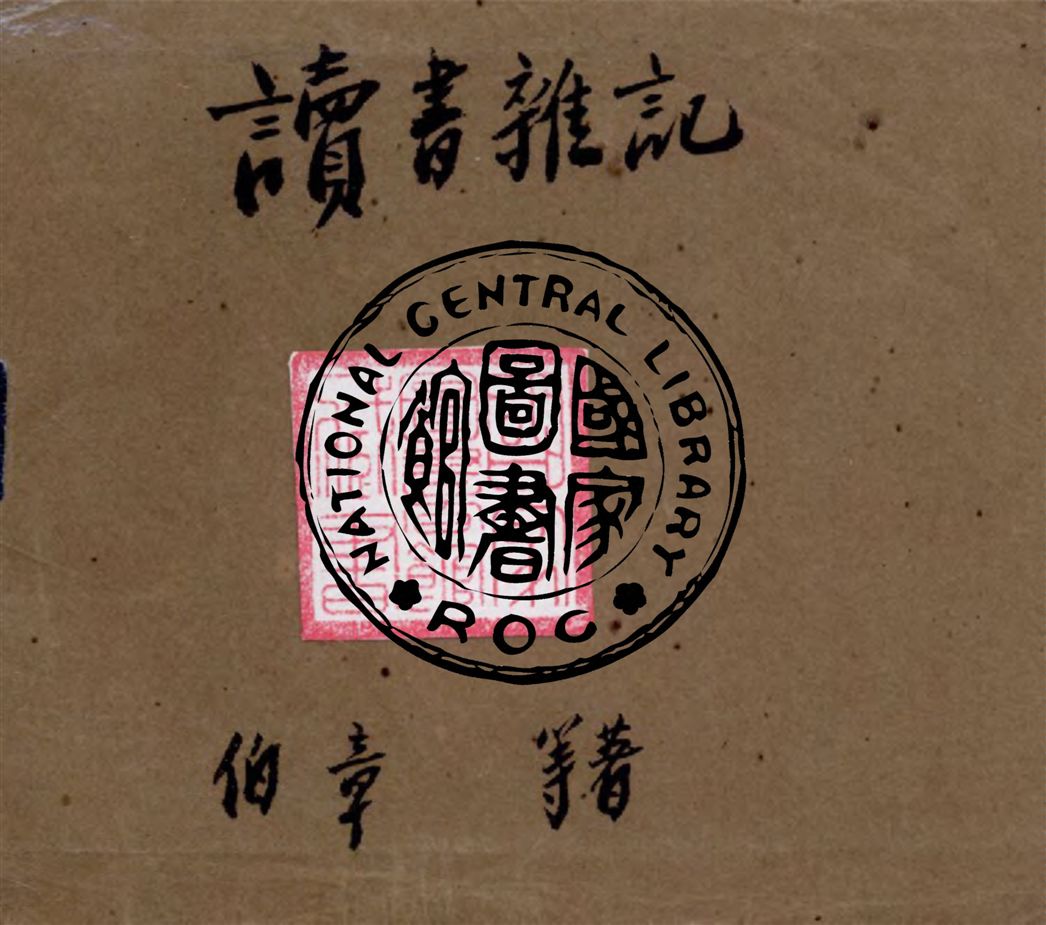 讀書雜記
NATIONAL CENTRAL LIBRARY
國家圖書館
ROC
伯章 等著